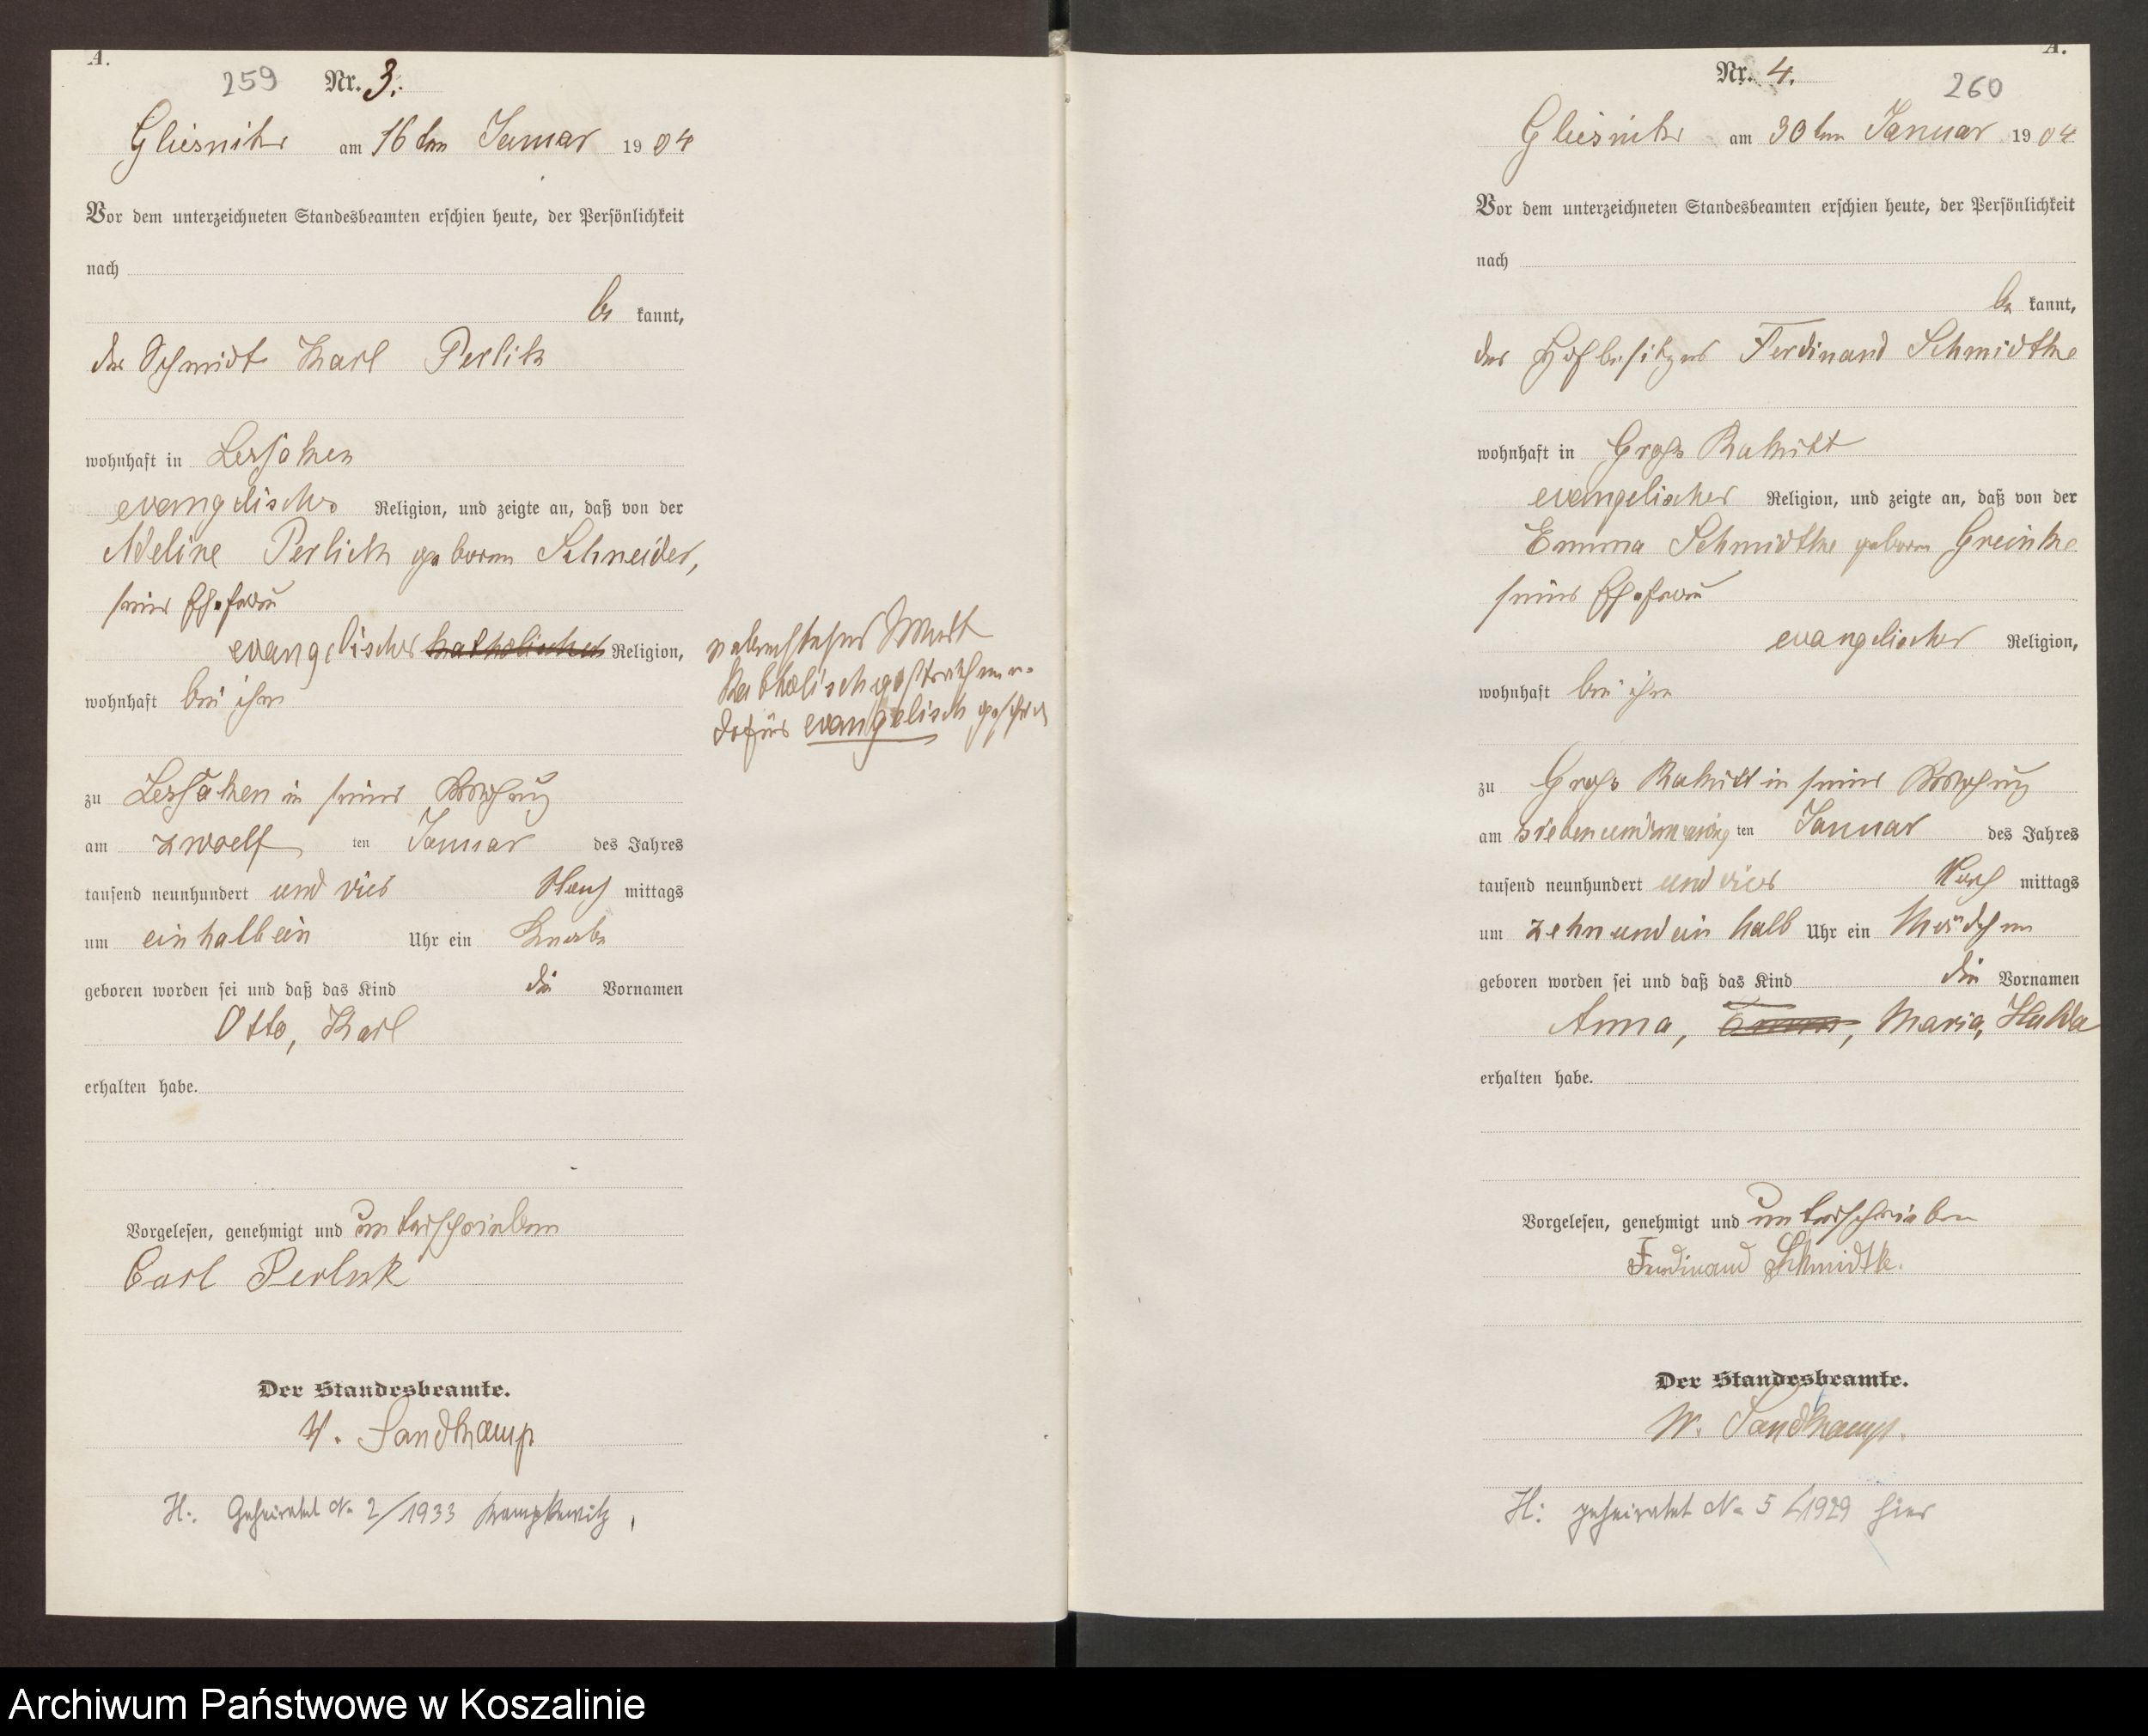 A.
259 Nr. 3.
Gliesnitz am 16ten Januar 1904
Vor dem unterzeichneten Standesbeamten erschien heute, der Persönlichkeit
nach
be kannt,
der Schmidt Karl Perlik
wohnhaft in Lessaken
evangelischer Religion, und zeigte an, daß von der
Adeline Perlick geboren Schneider,
seiner Ehefrau
evangelischer katholischer Religion,
wohnhaft bei ihm
zu Lessaken in seiner Wohnung
am zwoelf ten Januar des Jahres
tausend neunhundert und vier Nach mittags
um einhalb ein Uhr ein Knabe
geboren worden sei und daß das Kind die Vornamen
Otto, Karl
erhalten habe.
Vorgelesen, genehmigt und unterschrieben
Carl Perlick
Der Standesbeamte.
W. Sandkamp
H.: Geheiratet No 2/1933
nebenstehend Wort
katholisch gestrichen
dafür evangelisch
A.
Nr. 4. 260
Gliesnitz am 30ten Januar 1904
Vor dem unterzeichneten Standesbeamten erschien heute, der Persönlichkeit
nach
be kannt,
der Hofbesitzer Ferdinand Schmidtke
wohnhaft in Gross Rakitt
evangelischer Religion, und zeigte an, daß von der
Emma Schmidtke geboren Greinke
seiner Ehefrau
evangelischer Religion,
wohnhaft bei ihm
zu Gross Rakitt in seiner Wohnung
am siebenundzwanzig ten Januar des Jahres
tausend neunhundert und vier Nach mittags
um zehn und ein halb Uhr ein Mädchen
geboren worden sei und daß das Kind die Vornamen
Anna, Maria, Hulda
erhalten habe.
Vorgelesen, genehmigt und unterschrieben
Ferdinand Schmidtke.
Der Standesbeamte.
W. Sandkamp.
H: geheiratet No 5/1929 hier
Archiwum Państwowe w Koszalinie